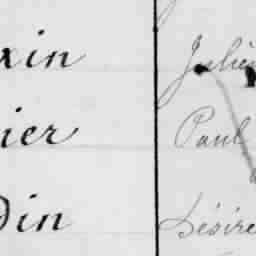 xin Julie
ier Paul
din Désiré